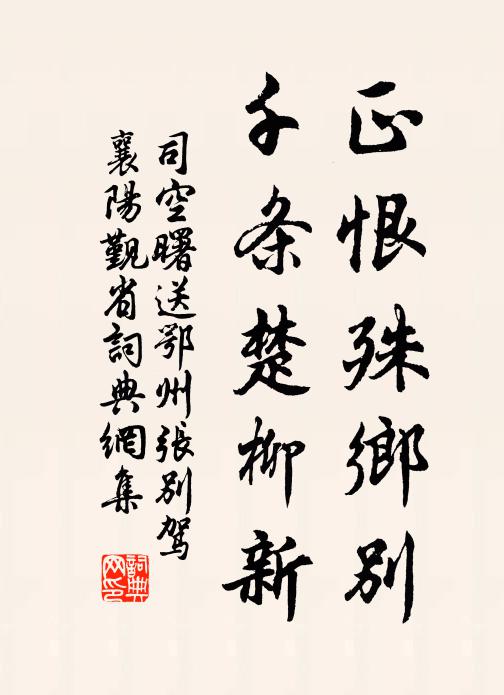 正恨殊鄉別
千条楚柳新
司空曙送鄂州張別駕
襄陽觐省詞典網集
詞典
网印